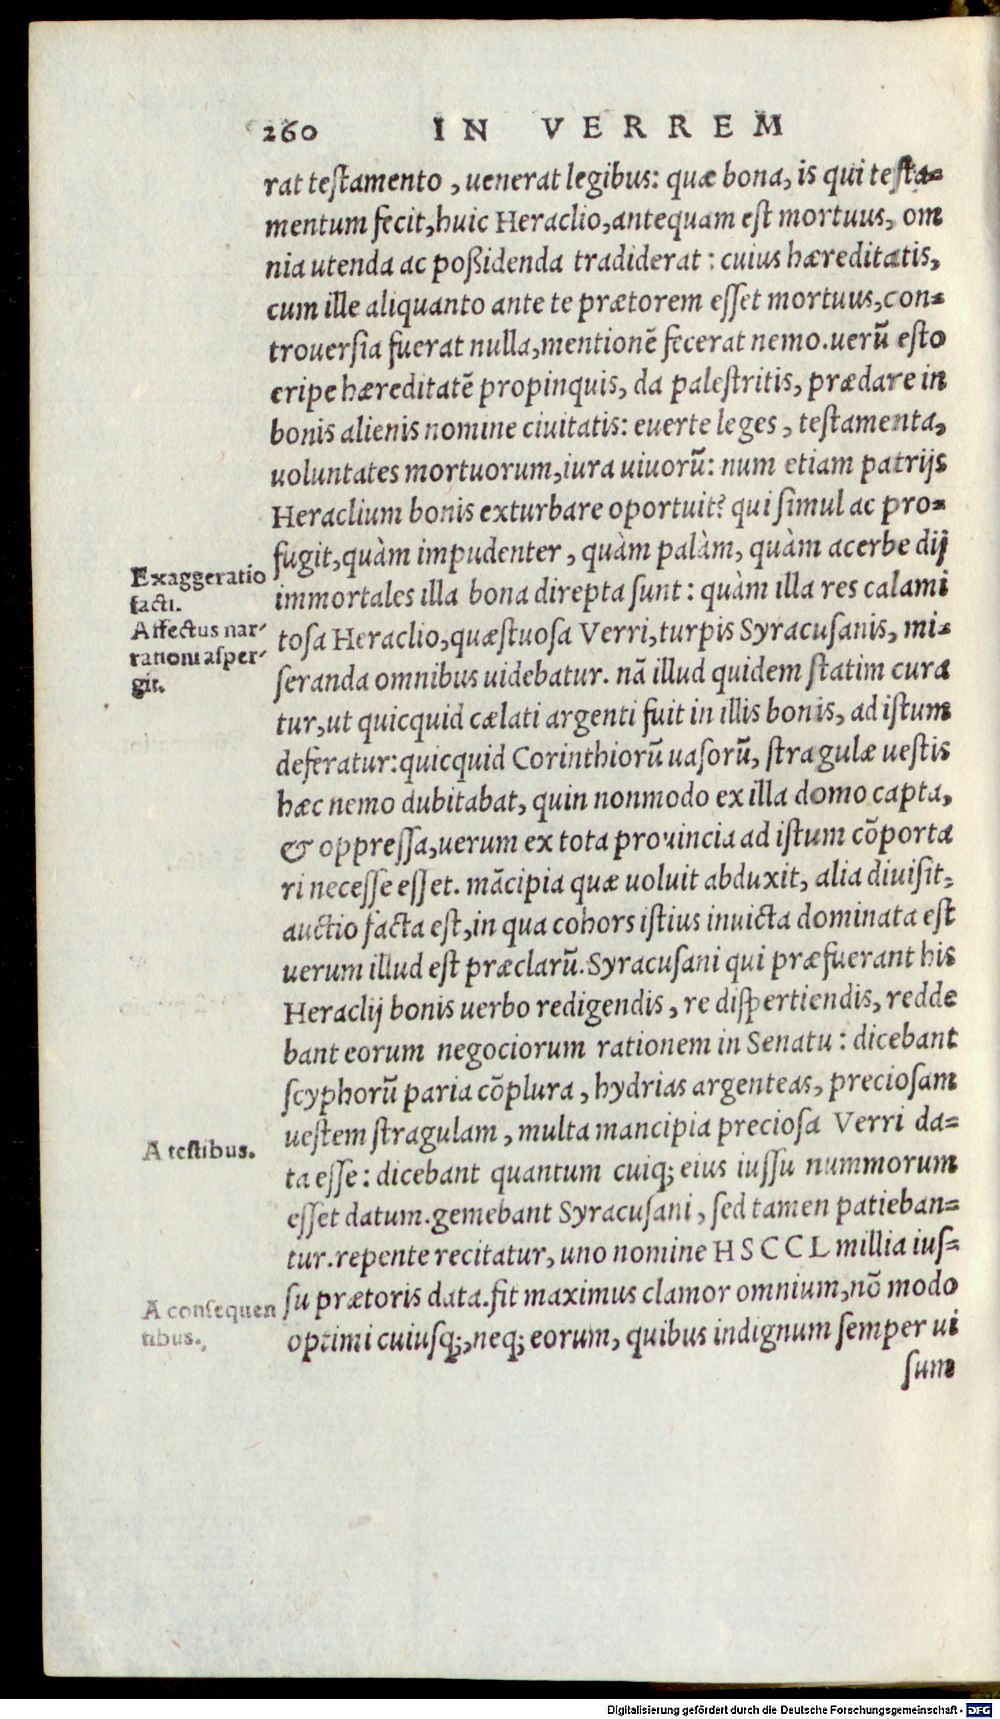 260 IN VERREM
rat teſtamento, uenerat legibus: quæ bona, is qui teſta-
mentum fecit, huic Heraclio, antequam eſt mortuus, om
nia utenda ac poßidenda tradiderat: cuius hæreditatis,
cum ille aliquanto ante te prætorem eſſet mortuus, con-
trouerſia fuerat nulla, mentionē fecerat nemo. uerū eſto
eripe hæreditatē propinquis, da paleſtritis, prædare in
bonis alienis nomine ciuitatis: euerte leges, teſtamenta,
uoluntates mortuorum, iura uiuorū: num etiam patrijs
Heraclium bonis exturbare oportuit? qui ſimul ac pro-
fugit, quàm impudenter, quàm palàm, quàm acerbe dij
Exaggeratio
facti.
immortales illa bona direpta ſunt: quàm illa res calami
Affectus nar-
rationi aſper-
git.
toſa Heraclio, quæſtuoſa Verri, turpis Syracuſanis, mi-
ſeranda omnibus uidebatur. nā illud quidem ſtatim cura
tur, ut quicquid cælati argenti fuit in illis bonis, ad iſtum
deferatur: quicquid Corinthiorū uaſorū, ſtragulæ ueſtis
hæc nemo dubitabat, quin nonmodo ex illa domo capta,
& oppreſſa, uerum ex tota prouincia ad iſtum cōporta
ri neceſſe eſſet. mācipia quæ uoluit abduxit, alia diuiſit,
auctio facta eſt, in qua cohors iſtius inuicta dominata eſt
uerum illud eſt præclarū. Syracuſani qui præfuerant his
Heraclij bonis uerbo redigendis, re diſpertiendis, redde
bant eorum negociorum rationem in Senatu: dicebant
ſcyphorū paria cōplura, hydrias argenteas, precioſam
ueſtem ſtragulam, multa mancipia precioſa Verri da-
A teſtibus.
ta eſſe: dicebant quantum cuiq; eius iuſſu nummorum
eſſet datum. gemebant Syracuſani, ſed tamen patieban-
tur. repente recitatur, uno nomine H S C C L millia iuſ-
ſu prætoris data. fit maximus clamor omnium, nō modo
A conſequen
tibus.
optimi cuiuſq;, neq; eorum, quibus indignum ſemper ui
ſum
Digitalisierung gefördert durch die Deutsche Forschungsgemeinschaft - DFG